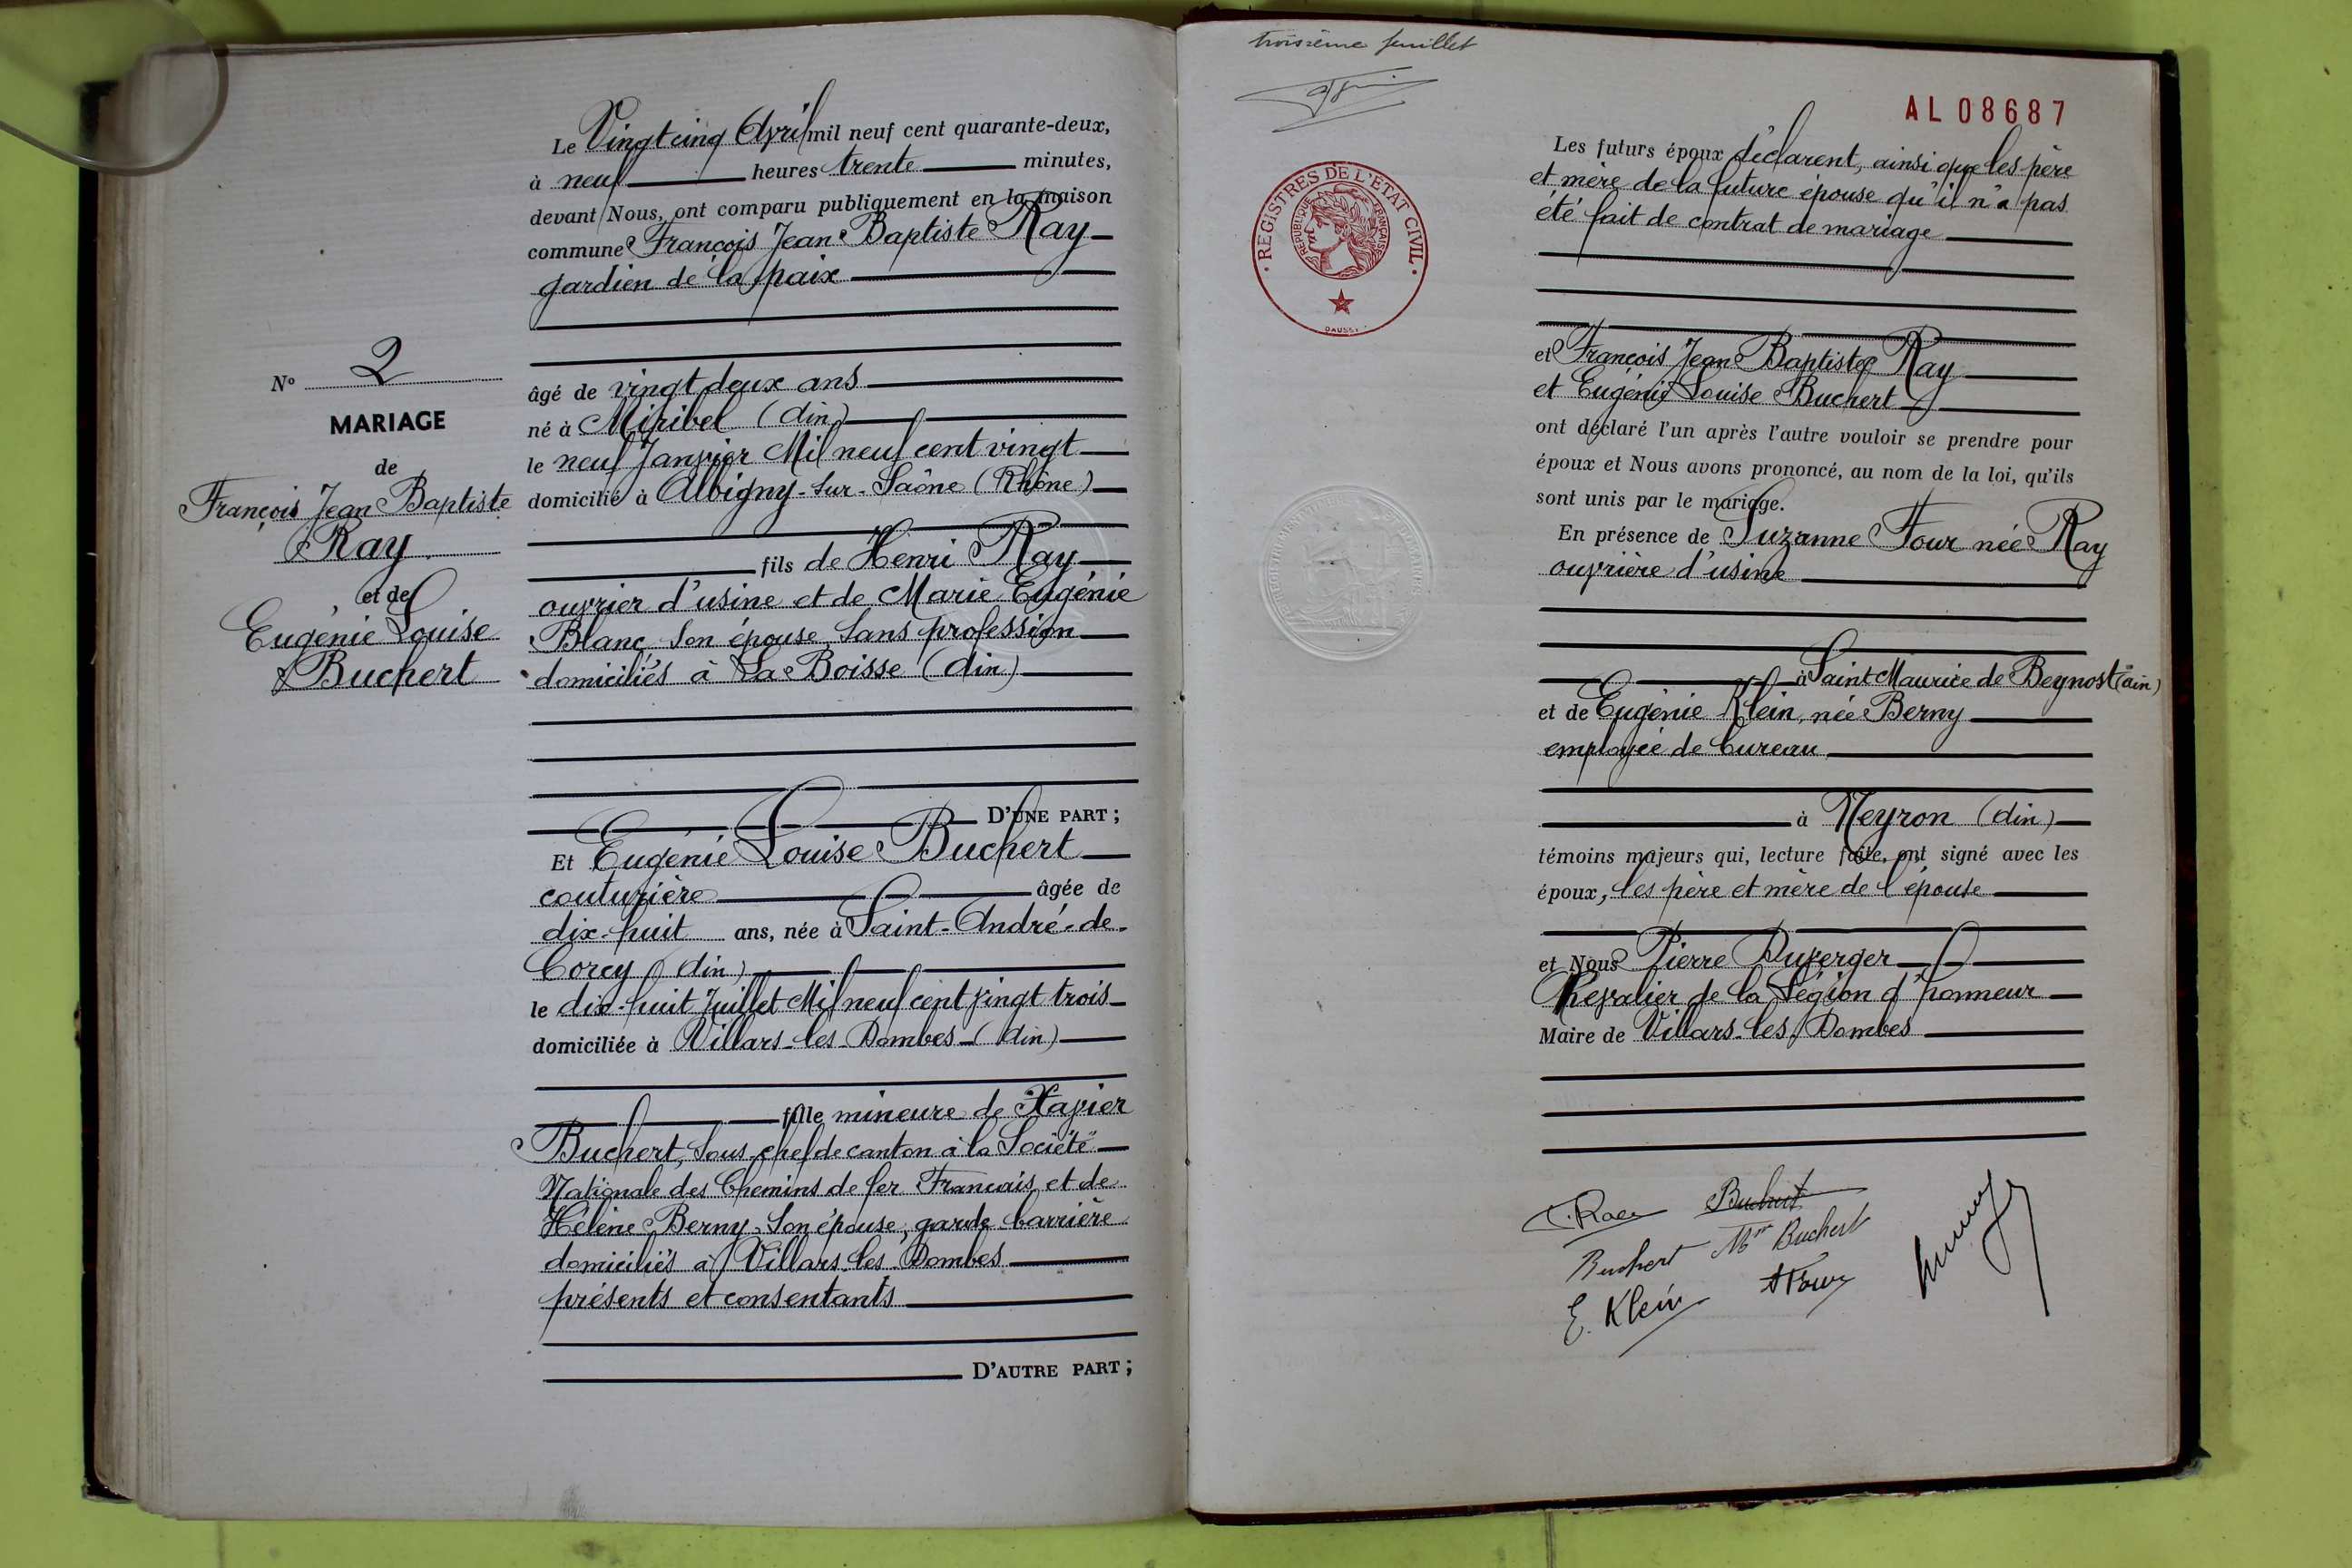 Le Vingt cinq Avril mil neuf cent quarante-deux,
à neuf heures trente minutes,
devant Nous, ont comparu publiquement en la maison
commune François Jean Baptiste Ray
gardien de la paix
âgé de vingt deux ans
né à Miribel (Ain)
le neuf Janvier Mil neuf cent vingt
domicilié à Albigny-sur-Saône (Rhône)
fils de Henri Ray
ouvrier d'usine et de Marie Eugénie
Blanc, son épouse, sans profession
domiciliés à La Boisse (Ain)
D'UNE PART;
N° 2
MARIAGE
de
François Jean Baptiste
Ray
et de
Eugénie Louise
Buchert
Et Eugénie Louise Buchert
couturière âgée de
dix-huit ans, née à Saint-André-de-
Corcy (Ain)
le dix-huit Juillet Mil neuf cent vingt trois
domiciliée à Villars-les-Dombes (Ain)
fille mineure de Xavier
Buchert, sous-chef de canton à la Société
Nationale des Chemins de fer Français et de
Hélène Berny, son épouse, garde barrière
domiciliés à Villars-les-Dombes
présents et consentants
D'AUTRE PART;
troisième feuillet
AL 08687
REGISTRES DE L'ÉTAT CIVIL
RÉPUBLIQUE FRANÇAISE
Les futurs époux déclarent, ainsi que les père
et mère de la future épouse qu'il n'a pas
été fait de contrat de mariage
et François Jean Baptiste Ray
et Eugénie Louise Buchert
ont déclaré l'un après l'autre vouloir se prendre pour
époux et Nous avons prononcé, au nom de la loi, qu'ils
sont unis par le mariage.
En présence de Suzanne Four née Ray
ouvrière d'usine
à Saint Maurice de Beynost (Ain)
et de Eugénie Klein, née Berny
employée de bureau
à Neyron (Ain)
témoins majeurs qui, lecture faite, ont signé avec les
époux, les père et mère de l'épouse
et Nous Pierre Duverger
Chevalier de la Légion d'honneur
Maire de Villars-les-Dombes
Buchert
Buchert Mme Buchert
E. Klein SFour